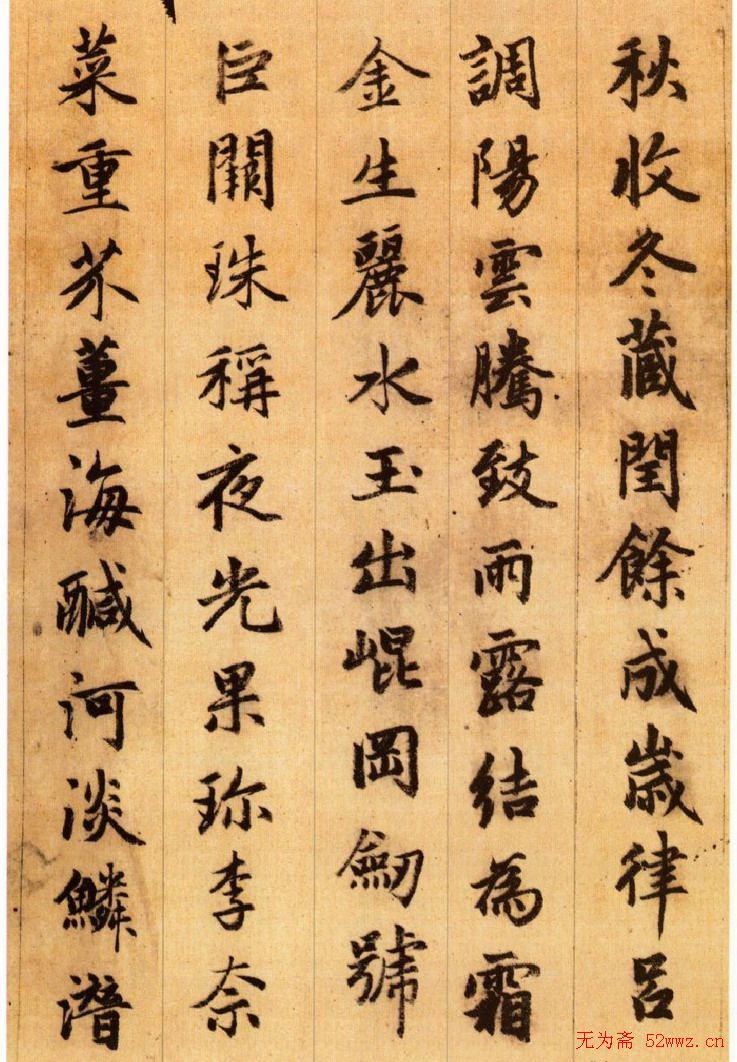 秋收冬蔵閏餘成歲律呂
調陽雲騰致雨露結為霜
金生麗水玉出崐岡劒號
巨闕珠稱夜光果珎李柰
菜重芥薑海醎河淡鱗潛
无为斋 52wwz.cn